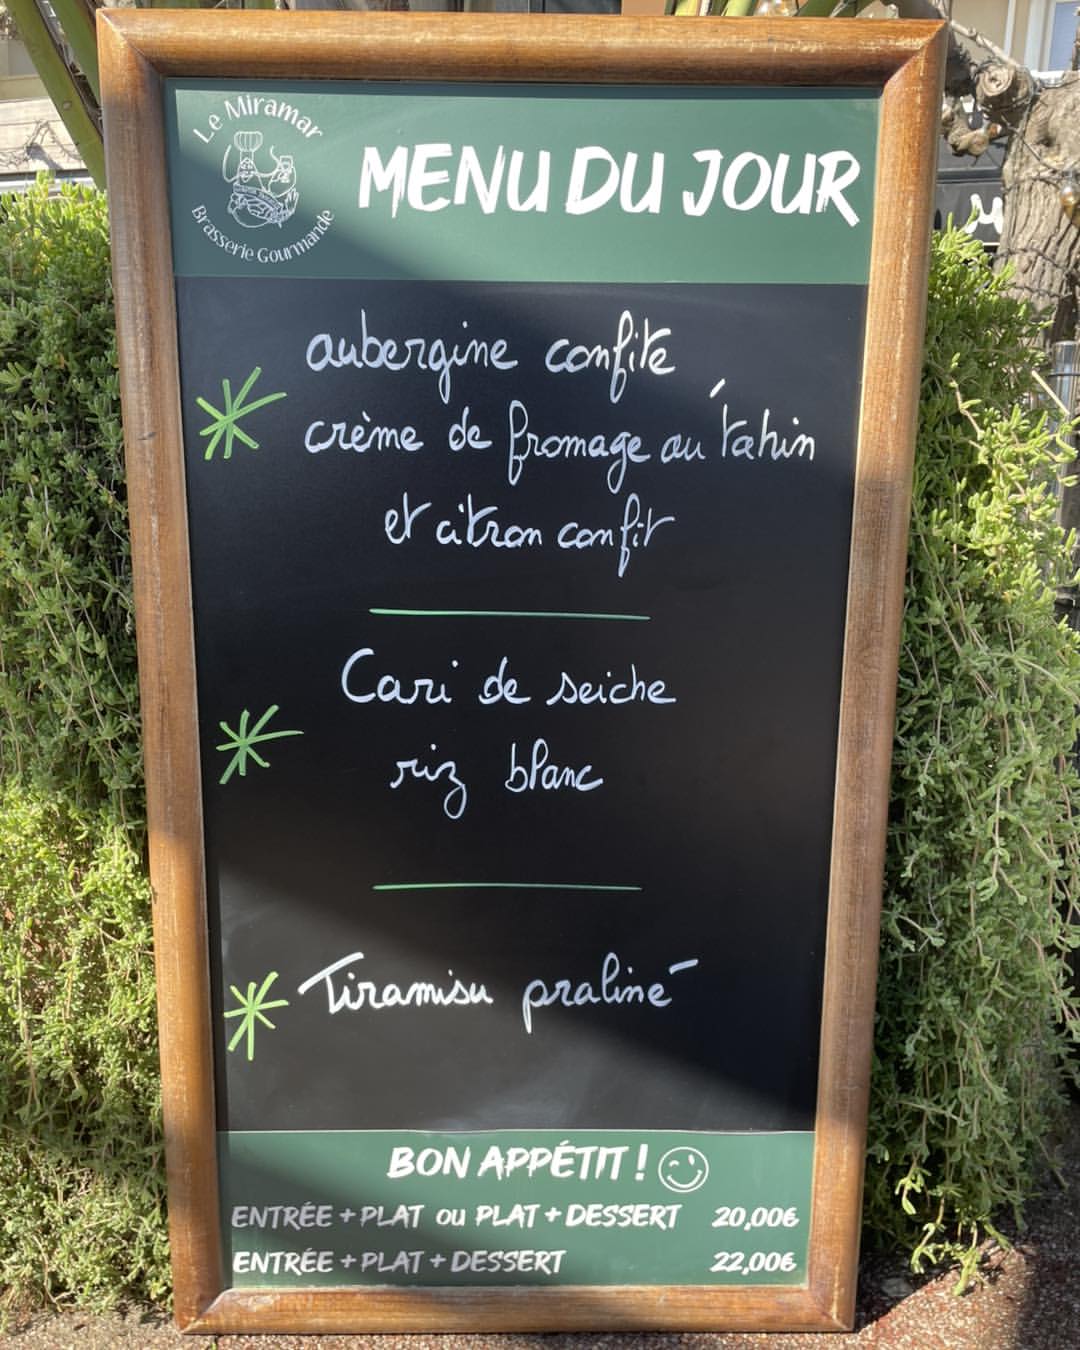 Le Miramar
Brasserie Gourmande
MENU DU JOUR
aubergine confite
crème de fromage au tahin
et citron confit
Cari de seiche
riz blanc
Tiramisu praliné
BON APPÉTIT !
ENTRÉE + PLAT OU PLAT + DESSERT 20,00€
ENTRÉE + PLAT + DESSERT 22,00€